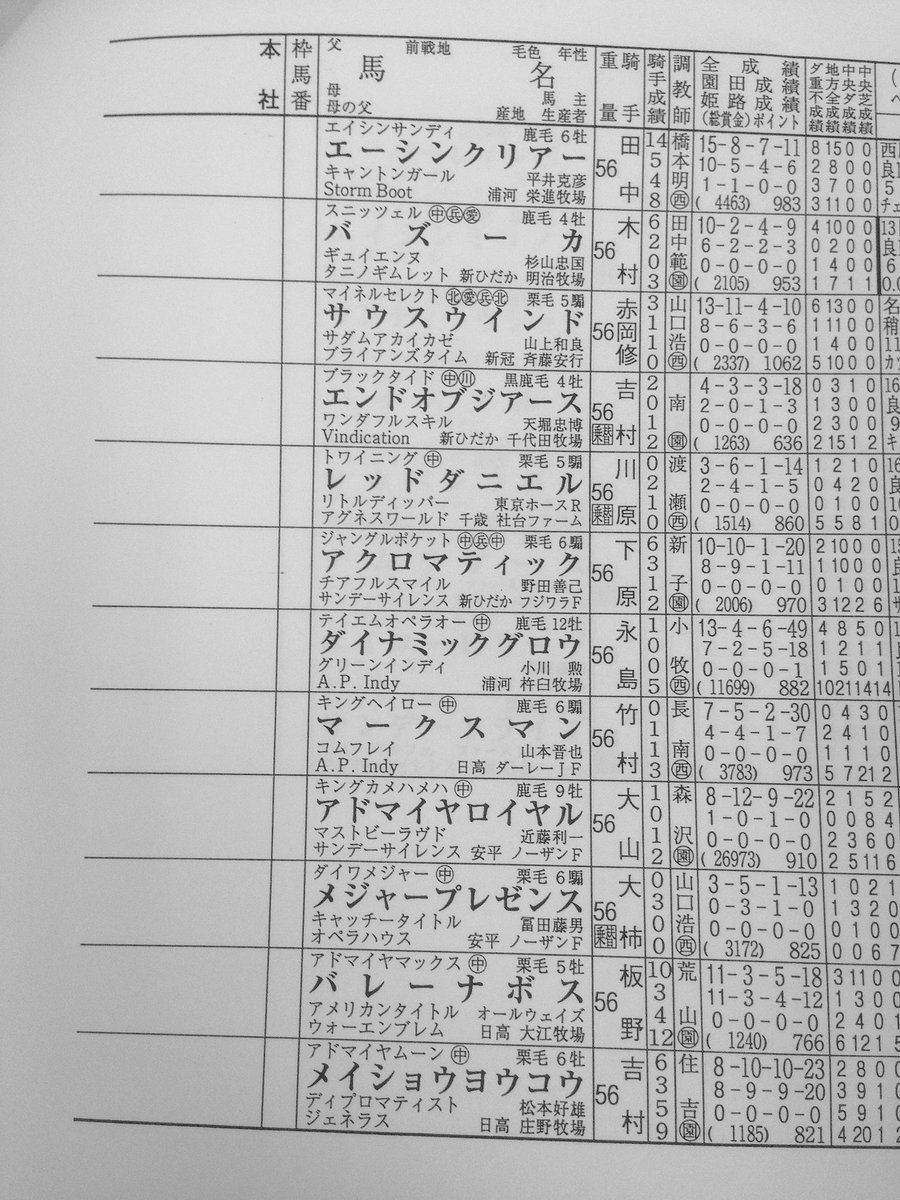 本社 枠馬番 父 前戦地 毛色 年性 馬名 母 母の父 馬主 産地 生産者 重量 騎手 騎手成績 調教師 全成績 園田成績 姫路成績 (総賞金)ポイント ダ重不成績 地方全成績 中央ダ成績 中央芝成績
エイシンサンディ 鹿毛 6牡 14 15-8-7-11 8 15 0 0
エーシンクリアー 56 田中 5 橋本明 10-5-4-6 2 8 0 0
キャントンガール 平井克彦 4 1-1-0-0 3 7 0 0
Storm Boot 浦河 栄進牧場 8 ㊄ (4463) 983 3 11 0 0
スニッツェル 中兵愛 鹿毛 4牡 6 10-2-4-9 4 10 0 0
バズーカ 56 木村 2 田中範 6-2-2-3 0 2 0 0
ギュイエンヌ 杉山忠国 0 0-0-0-0 1 4 0 0
タニノギムレット 新ひだか 明治牧場 3 園 (2105) 953 1 7 1 1
マイネルセレクト 北愛兵北 栗毛 5騸 3 13-11-4-10 6 13 0 0
サウスウインド 56 赤岡修 1 山口浩 8-6-3-6 1 11 0 0
サダムアカイカゼ 山上和良 1 0-0-0-0 1 4 0 0
ブライアンズタイム 新冠 斉藤安行 0 西 (2337) 1062 5 10 0 0
ブラックタイド 中川 黒鹿毛 4牡 2 4-3-3-18 0 3 1 0
エンドオブジアース 56 吉村 0 南 2-0-1-3 1 3 0 0
ワンダフルスキル 天堀忠博 1 0-0-0-0 2 3 0 0
Vindication 新ひだか 千代田牧場 2 園 (1263) 636 2 15 1 2
トワイニング 中 栗毛 5騸 0 3-6-1-14 1 2 1 0
レッドダニエル 56 川原 2 渡瀬 2-4-1-5 0 4 2 0
リトルディッパー 東京ホースR 1 0-0-0-0 0 1 0 0
アグネスワールド 千歳 社台ファーム 0 西 (1514) 860 5 5 8 1
ジャングルポケット 中兵中 栗毛 6騸 6 10-10-1-20 2 10 0 0
アクロマティック 56 下原 3 新子 8-9-1-11 1 10 0 0
チアフルスマイル 野田善己 1 0-0-0-0 0 1 0 0
サンデーサイレンス 新ひだか フジワラF 2 園 (2006) 970 3 12 2 6
テイエムオペラオー 中 鹿毛 12牡 1 13-4-6-49 4 8 5 0
ダイナミックグロウ 56 永島 0 小牧 7-2-5-18 1 2 1 1
グリーンインディ 小川 勲 0 0-0-0-1 1 5 0 1
A.P. Indy 浦河 杵臼牧場 5 西 (11699) 882 10 21 14 14
キングヘイロー 中 鹿毛 6騸 0 7-5-2-30 0 4 3 0
マークスマン 56 竹村 1 長南 4-4-1-7 2 4 1 0
コムフレイ 山本晋也 1 0-0-0-0 1 1 1 0
A.P. Indy 日高 ダーレーJF 3 西 (3783) 973 5 7 21 2
キングカメハメハ 中 鹿毛 9牡 1 8-12-9-22 2 1 5 2
アドマイヤロイヤル 56 大山 0 森沢 1-0-1-0 0 0 8 4
マストビーラヴド 近藤利一 1 0-0-0-0 2 3 6 0
サンデーサイレンス 安平 ノーザンF 2 園 (26973) 910 2 5 11 6
ダイワメジャー 中 栗毛 6騸 0 3-5-1-13 1 0 2 1
メジャープレゼンス 56 大柿 3 山口浩 0-3-1-0 1 3 2 0
キャッチータイトル 冨田藤男 0 0-0-0-0 0 1 0 0
オペラハウス 安平 ノーザンF 0 西 (3172) 825 0 0 6 7
アドマイヤマックス 中 栗毛 5牡 10 11-3-5-18 3 11 0 0
バレーナボス 56 板野 3 荒山 11-3-4-12 1 3 0 0
アメリカンタイトル オールウェイズ 4 0-0-0-0 2 4 0 1
ウォーエンブレム 日高 大江牧場 12 園 (1240) 766 6 12 1 5
アドマイヤムーン 中 栗毛 6牡 6 8-10-10-23 2 8 0 0
メイショウヨウコウ 56 吉村 3 住吉 8-9-9-20 3 9 1 0
ディプロマティスト 松本好雄 5 0-0-0-0 5 9 1 0
ジェネラス 日高 庄野牧場 9 園 (1185) 821 4 20 1 2